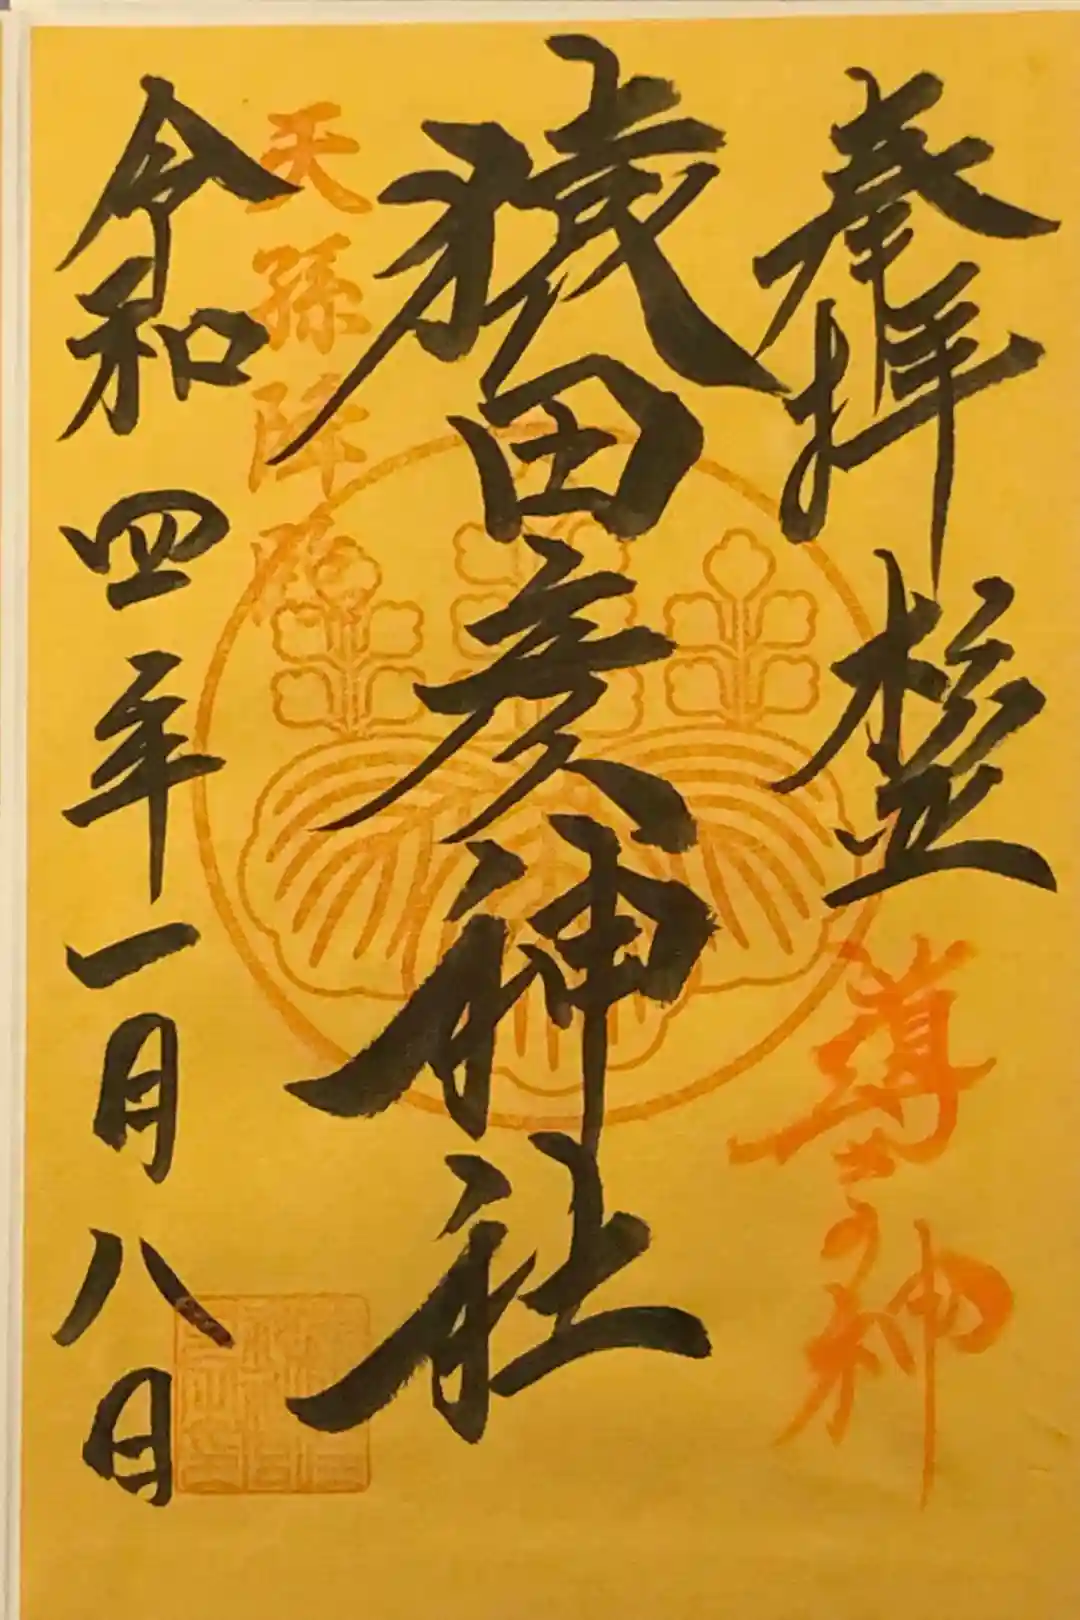 奉拝
導きの神
猿田彦神社
天孫降臨
令和四年一月八日